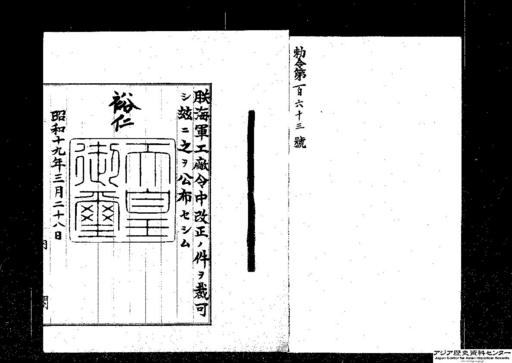 勅令第一百六十三號
朕海軍工廠令中改正ノ件ヲ裁可
シ玆ニ之ヲ公布セシム
裕仁
天皇
御璽
昭和十九年三月二十八日
内
閣
アジア歴史資料センター
Japan Center for Asian Historical Records